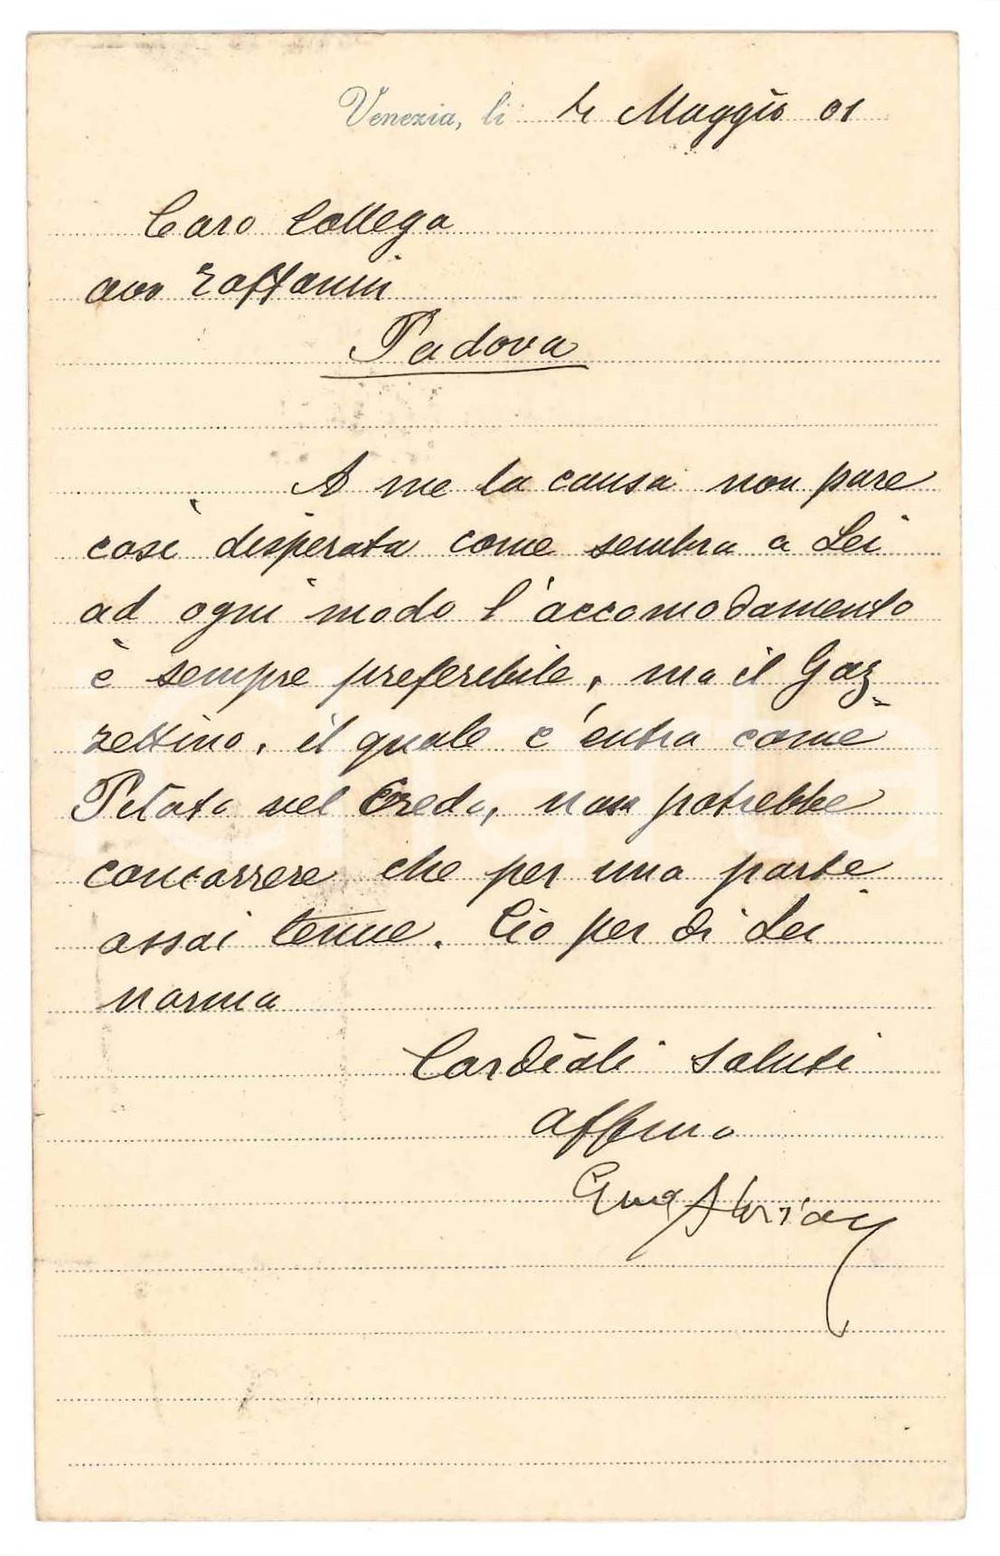 Venezia, li 4 Maggio 01
Caro Collega
avv Zaffanini
Padova
A me la causa non pare
così disperata come sembra a Lei
ad ogni modo l'accomodamento
è sempre preferibile, ma il Gaz=
zettino, il quale c'entra come
Pilato nel Credo, non potrebbe
concorrere che per una parte
assai tenue. Ciò per di Lei
norma
Cordiali saluti
affemo